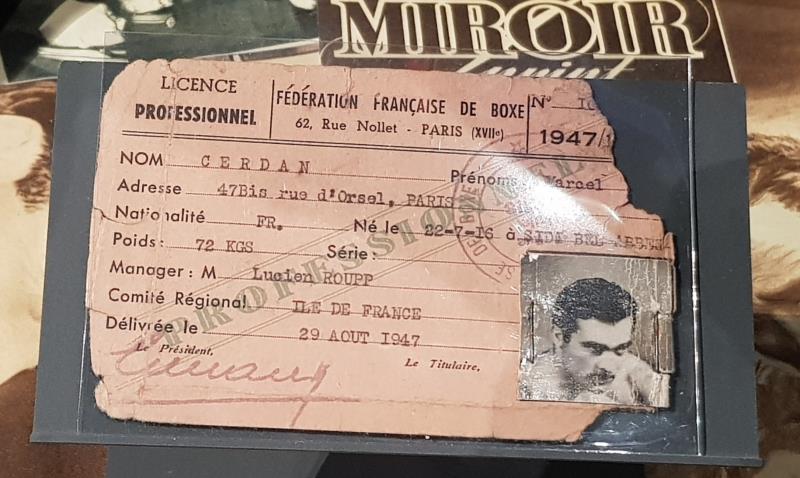 MIROIR
LICENCE
PROFESSIONNEL
FÉDÉRATION FRANÇAISE DE BOXE
62, Rue Nollet - PARIS (XVIIe)
N°
1947/
NOM CERDAN Prénoms Marcel
Adresse 47Bis rue d'Orsel, PARIS
Nationalité FR. Né le 22-7-16 à SIDI BEL ABBES
Poids: 72 KGS Série:
Manager: M Lucien ROUPP
Comité Régional ILE DE FRANCE
Délivrée le 29 AOUT 1947
Le Président,
Le Titulaire,
PROFESSIONNEL